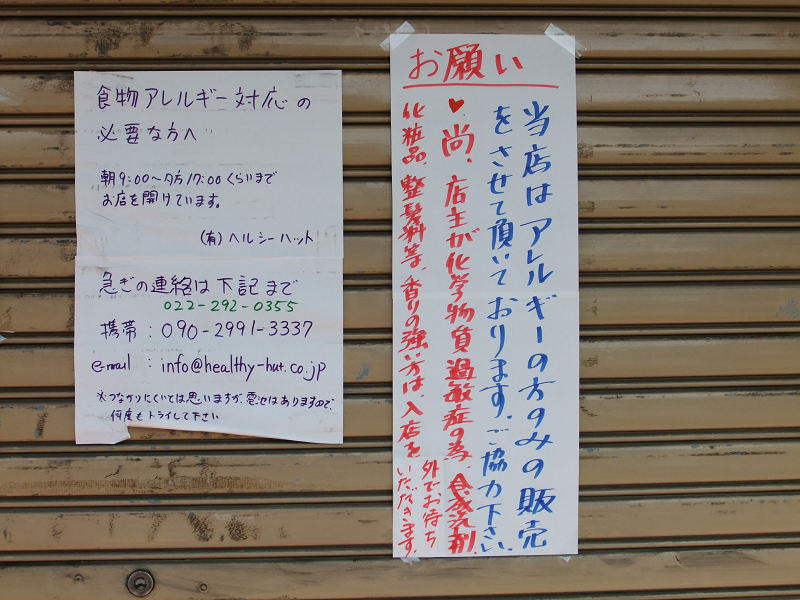 食物アレルギー対応の
必要な方へ
朝9:00〜夕方17:00くらいまで
お店を開けています。
(有)ヘルシーハット
急ぎの連絡は下記まで
022-292-0355
携帯:090-2991-3337
e-mail:info@healthy-hut.co.jp
※つながりにくいとは思いますが、電池はありますので、
何度もトライして下さい
お願い
当店はアレルギーの方のみの販売
をさせて頂いております。ご協力下さい。
♥尚、店主が化学物質過敏症の為、合成洗剤、
化粧品、整髪料等、香りの強い方は、入店を
外でお待ち
いただきます。